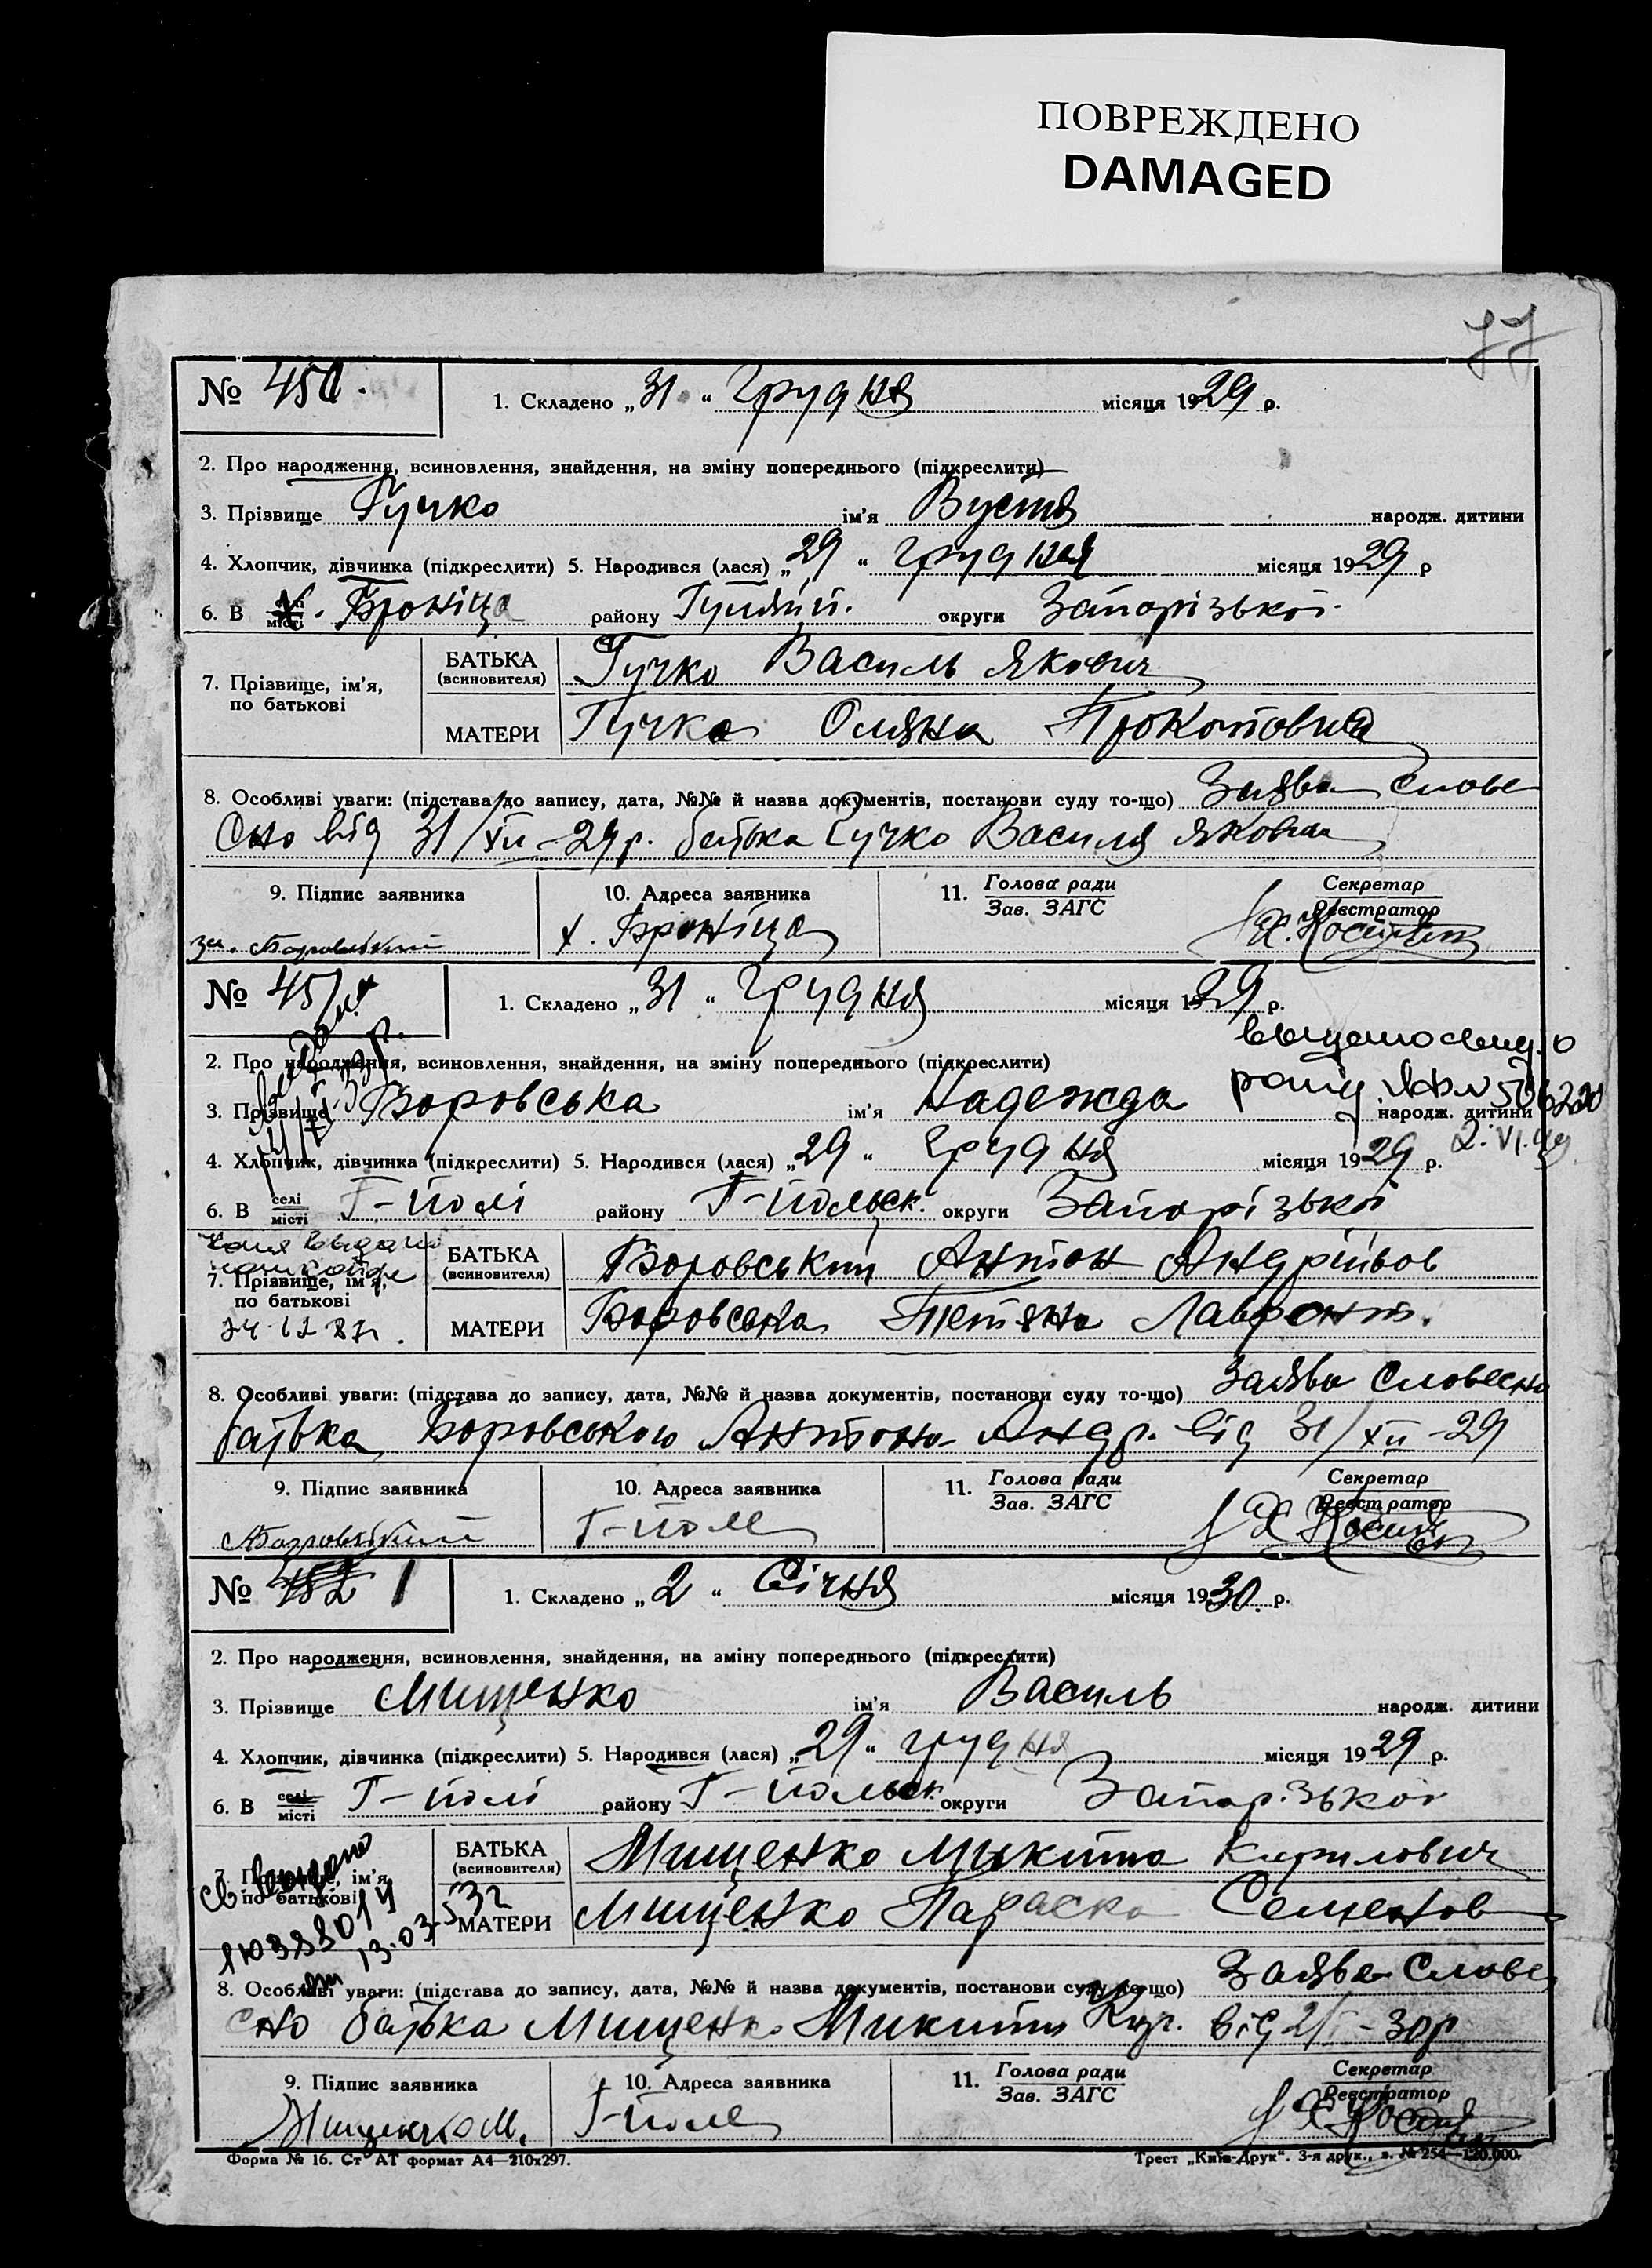 ПОВРЕЖДЕНО
DAMAGED
77
№ 450. 1. Складено „31“ грудня місяця 1929 р.
2. Про народження, всиновлення, знайдення, на зміну попереднього (підкреслити)
3. Прізвище Гучко ім'я Вустя народж. дитини
4. Хлопчик, дівчинка (підкреслити) 5. Народився (лася) „29“ грудня місяця 1929 р
6. В х. Броніца району Гуляйп. округи Запорізької
7. Прізвище, ім'я, по батькові
БАТЬКА (всиновителя) Гучко Василь Якович
МАТЕРИ Гучко Оляна Прокоповна
8. Особливі уваги: (підстава до запису, дата, №№ й назва документів, постанови суду то-що) Заява слове
сно від 31/XII-29р. батька Гучко Василя Яковича
9. Підпис заявника 10. Адреса заявника 11. Голова ради Секретар
Зав. ЗАГС Реєстратор
за. Боровський х. Броніца
№ 451 1. Складено „31“ грудня місяця 1929 р.
2. Про народження, всиновлення, знайдення, на зміну попереднього (підкреслити)
3. Прізвище Боровська ім'я Надежда народж. дитини
2.VI.49
4. Хлопчик, дівчинка (підкреслити) 5. Народився (лася) „29“ грудня місяця 1929 р.
6. В селі місті Г-Полі району Г-Польск. округи Запорізької
7. Прізвище, ім'я, по батькові
БАТЬКА (всиновителя) Боровський Антон Андрійов
МАТЕРИ Боровська Тетяна Лаврент.
8. Особливі уваги: (підстава до запису, дата, №№ й назва документів, постанови суду то-що) Заява словесно
батька Боровського Антона Андр. від 31/XII-29
9. Підпис заявника 10. Адреса заявника 11. Голова ради Секретар
Зав. ЗАГС Реєстратор
Боровський Г-Поле
№ 452 1 1. Складено „2“ Січня місяця 1930. р.
2. Про народження, всиновлення, знайдення, на зміну попереднього (підкреслити)
3. Прізвище Мищенко ім'я Василь народж. дитини
4. Хлопчик, дівчинка (підкреслити) 5. Народився (лася) „29“ грудня місяця 1929 р.
6. В селі місті Г-Полі району Г-Польск. округи Запорізької
7. Прізвище, ім'я, по батькові
БАТЬКА (всиновителя) Мищенко Микита Кирилович
МАТЕРИ Мищенко Параска Семенов
8. Особливі уваги: (підстава до запису, дата, №№ й назва документів, постанови суду то-що) Заява слове
сно батька Мищенко Микити Кир. від 2/I-30р
9. Підпис заявника 10. Адреса заявника 11. Голова ради Секретар
Зав. ЗАГС Реєстратор
Мищенко М. Г-Поле
Форма № 16. Ст АТ формат А4—210х297. Трест „Київ-Друк“. 3-я друк., з. № 254—120.000.